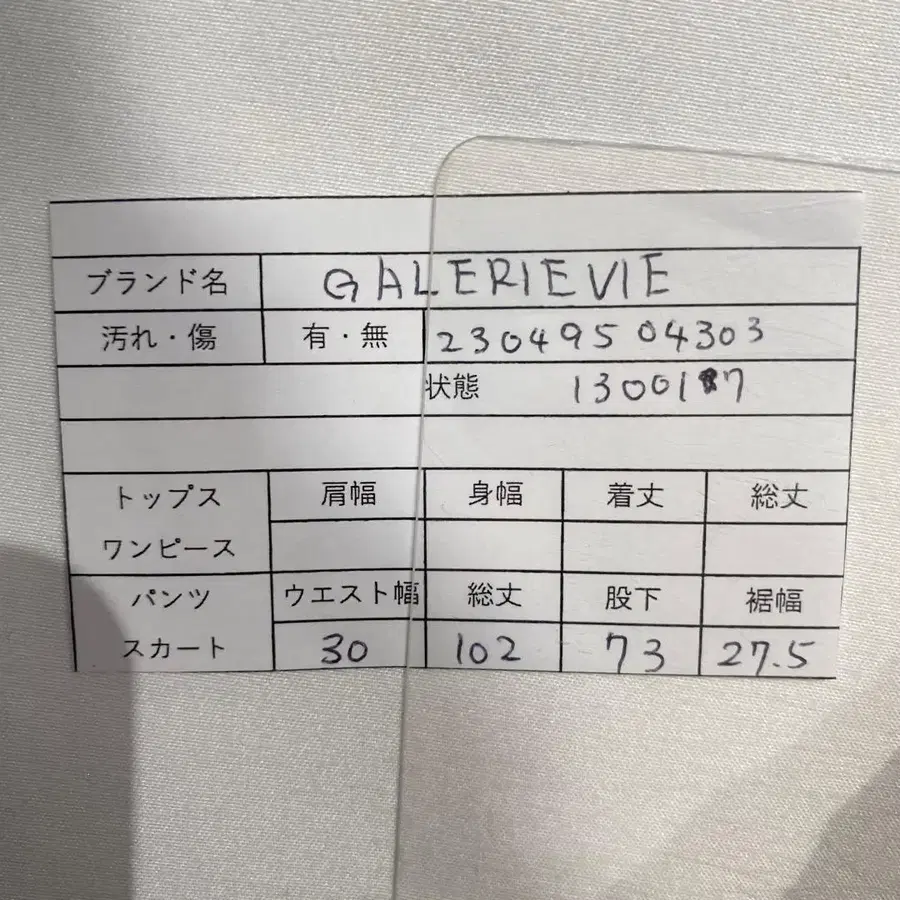 ブランド名 GALERIEVIE
汚れ・傷 有・無 23049504303
状態 1300187
トップス 肩幅 身幅 着丈 総丈
ワンピース
パンツ ウエスト幅 総丈 股下 裾幅
スカート 30 102 73 27.5